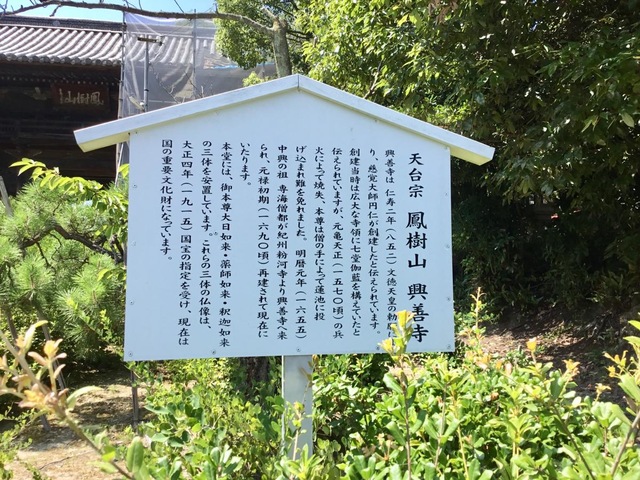 天台宗 鳳樹山 興善寺
興善寺は 仁寿二年(八五二)文徳天皇の勅
り、慈覚大師円仁が創建したと伝えられています。
創建当時は広大な寺領に七堂伽藍を構えていたと
伝えられていますが、元亀天正(一五七〇頃)の兵
火によって焼失、本尊は僧の手によって蓮池に投
げ込まれ難を免れました。 明暦元年(一六五五)
中興の祖 専海僧都が紀州粉河寺より興善寺へ来
られ、元禄初期(一六九〇頃)再建されて現在に
いたります。
本堂には、御本尊大日如来・薬師如来・釈迦如来
の三体を安置しています。これらの三体の仏像は、
大正四年(一九一五)国宝の指定を受け、現在は
国の重要文化財になっています。
山樹鳳